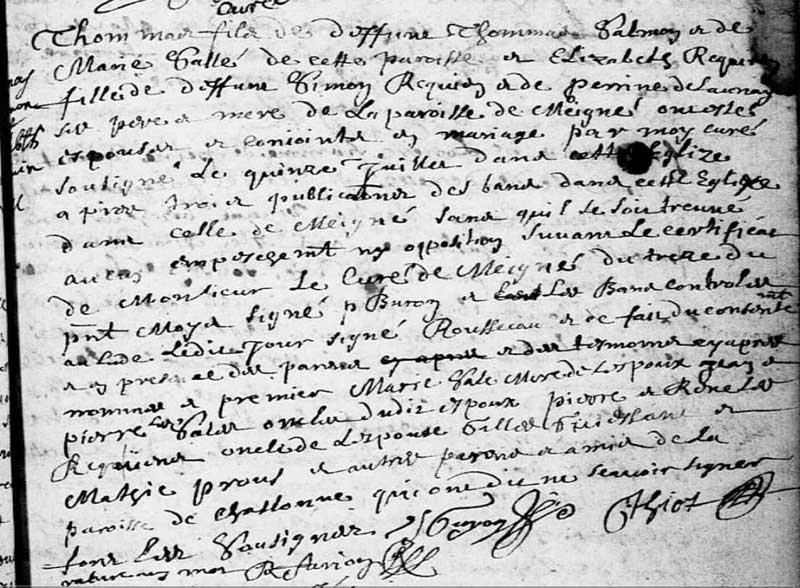 Curé
Thommas fils de deffunc Thommas Salmon & de
Marie Sallé de cette paroisse et Elizabeth Requien
fille de deffunc Simon Requien & de perrine delaunay
ses pere & mere de La paroisse de Meigné ont estés
espousés et conjoints en mariage par moy curé
sousigné Le quinze Juillet dans cette Eglize
apres trois publications des bans dans cette Eglize
dans celle de Meigné sans qu'il se soit treuvé
aucun empeschement ny opposition suivant Le certificat
de Monsieur Le Curé de Meigné du treze du
pnt Moys signé p Buron et Les Bans controlés
ledit Jour signé Rousseau & ce fait du consentmt
& en presence des parans & des tesmoins cy apres
nommés & premier Marie Salé Mere de Lespoux Jean &
pierre Les Salés oncles dudit espoux pierre & René Les
Requiens oncle de Lespouse Gilles &
Mathie prous & autres parens & amis de la
paroisse de Challonne qui ont dit ne scavoir signer
fors Les Sousignés Thiot
moy